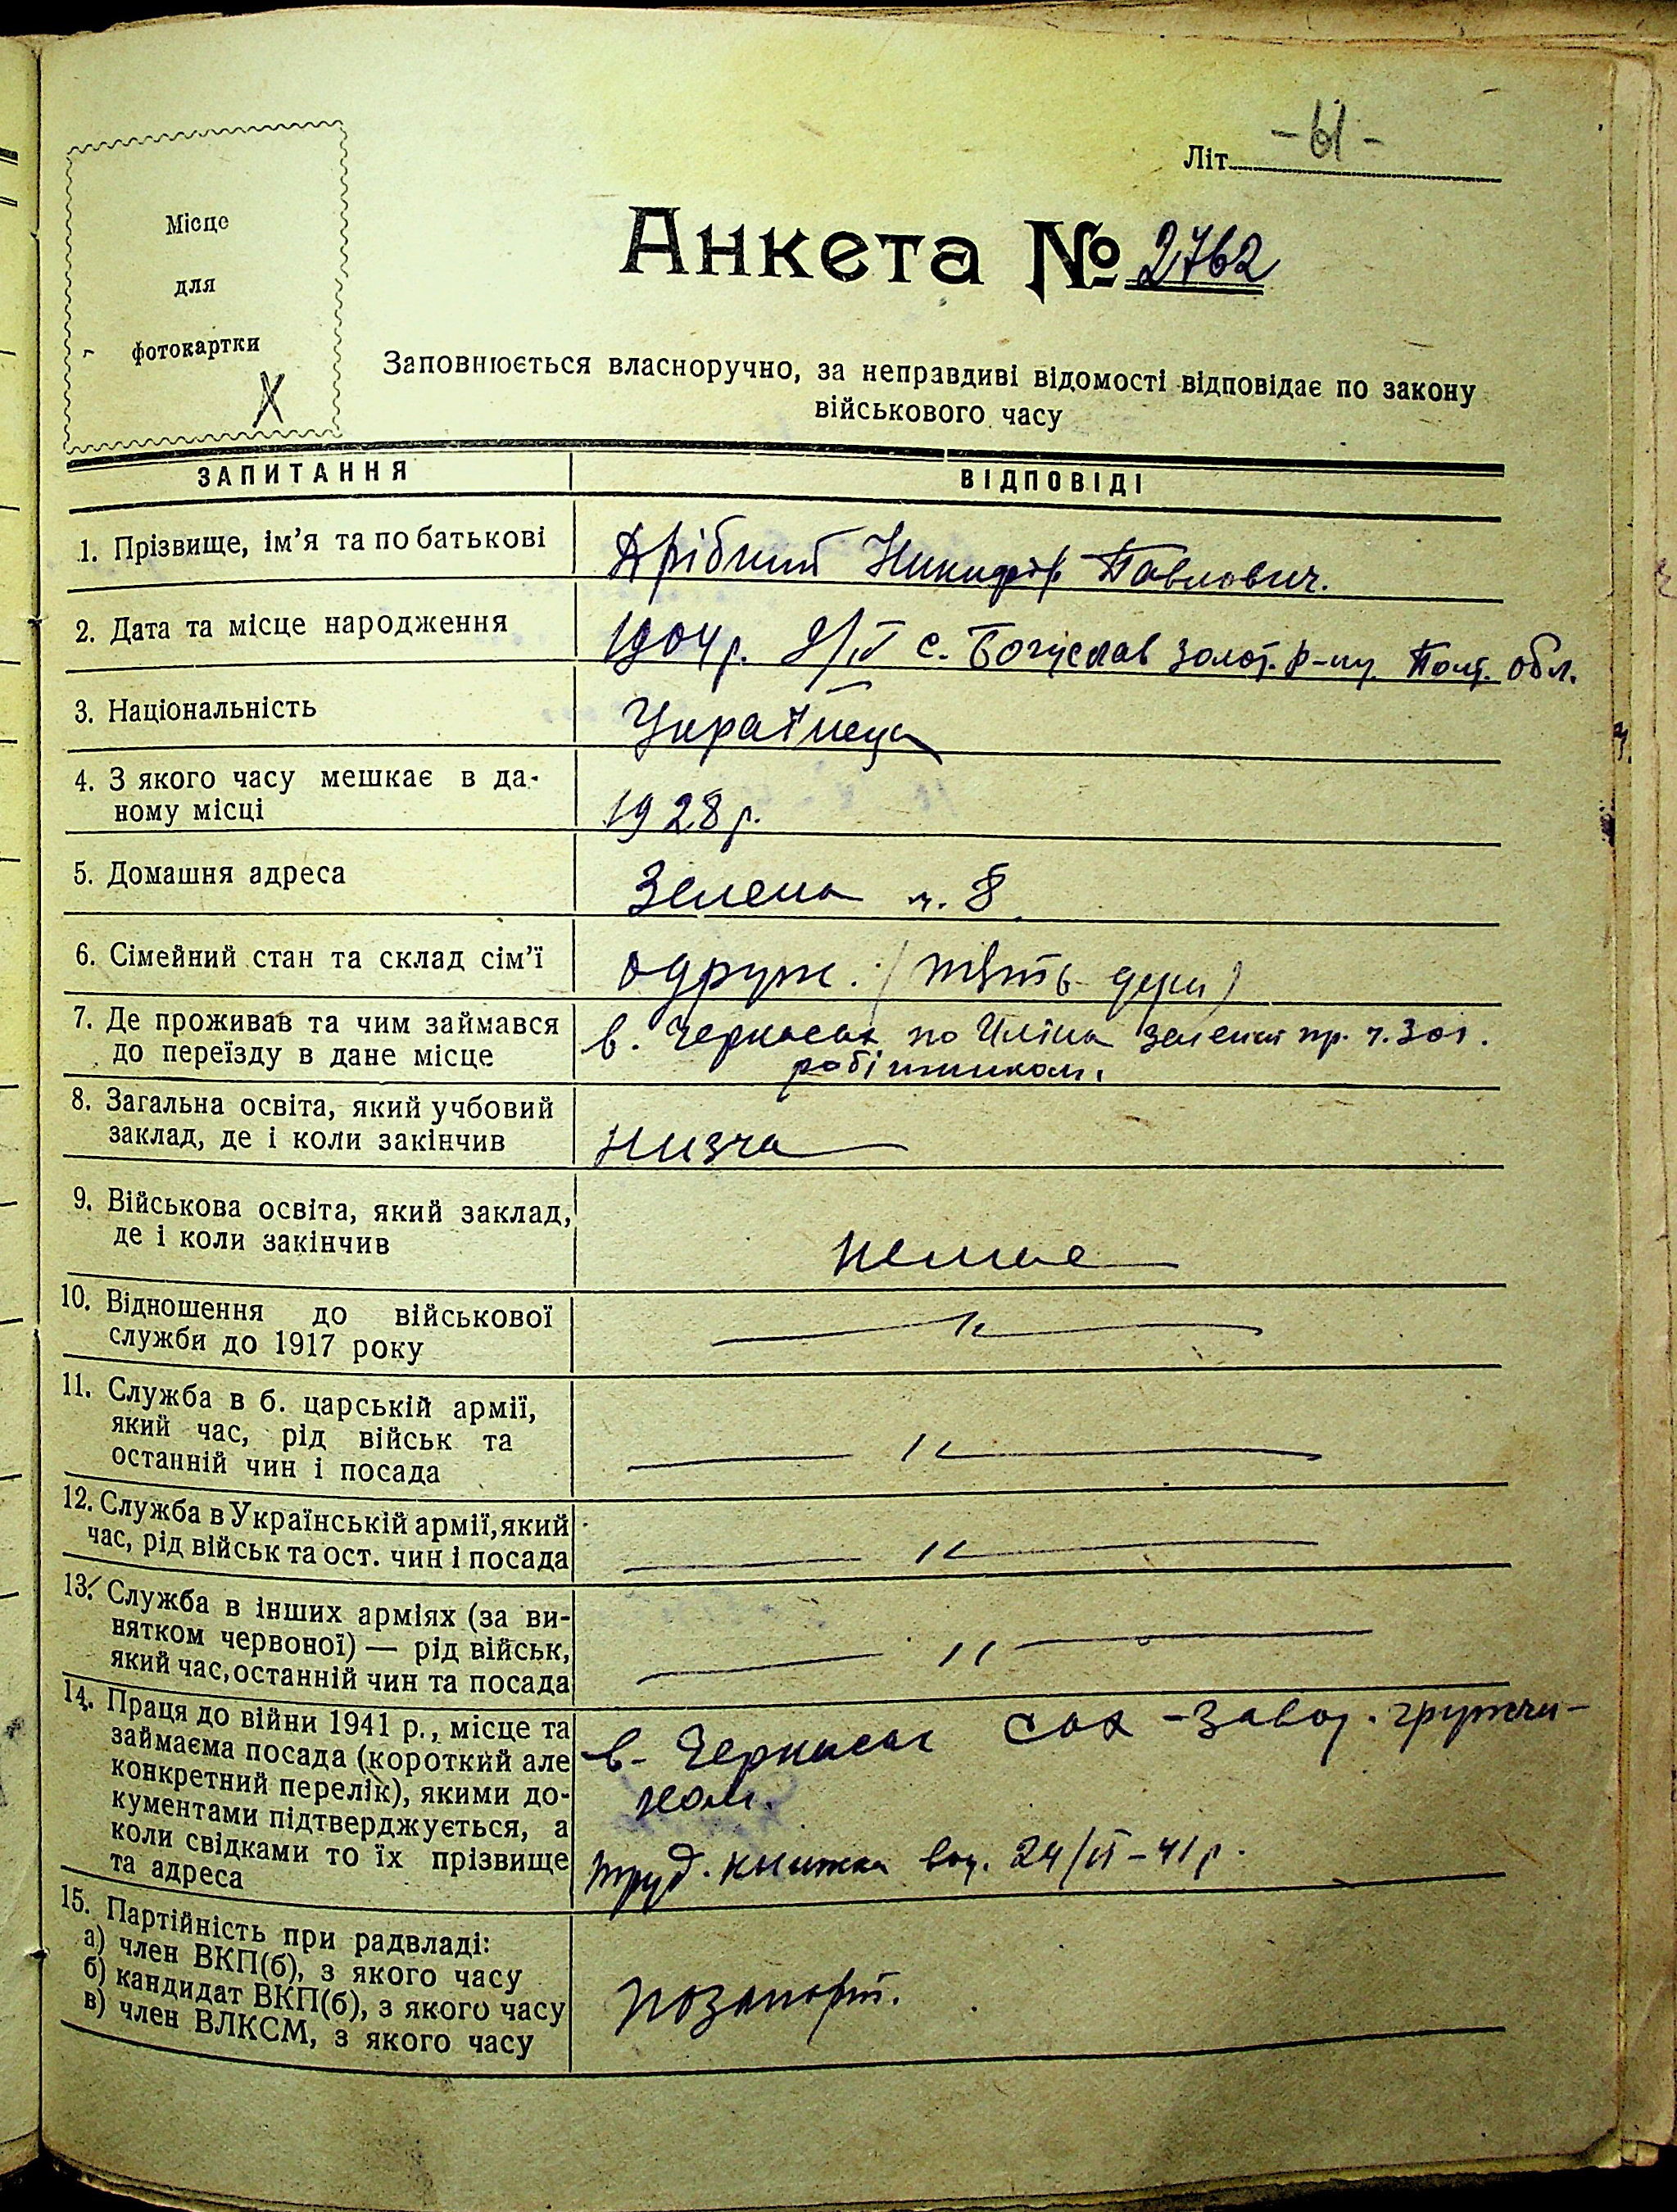 Літ. -61-
Місце
для
фотокартки
X
Анкета № 2762
Заповнюється власноручно, за неправдиві відомості відповідає по закону
військового часу
ЗАПИТАННЯ ВІДПОВІДІ
1. Прізвище, ім’я та по батькові Дрібний Никифор Павлович.
2. Дата та місце народження 1904 р. с. Богуслав Золот. р-ну Полт. обл.
3. Національність Українець
4. З якого часу мешкає в да-
ному місці
1928 р.
5. Домашня адреса Зелена ч. 8
6. Сімейний стан та склад сім’ї одруж. (
7. Де проживав та чим займався
до переїзду в дане місце
в. Черкасах по Зелений пр. ч. 301.
робітником.
8. Загальна освіта, який учбовий
заклад, де і коли закінчив
низча
9. Військова освіта, який заклад,
де і коли закінчив
немає
10. Відношення до військової
служби до 1917 року
— " —
11. Служба в б. царській армії,
який час, рід військ та
останній чин і посада
— " —
12. Служба в Українській армії, який
час, рід військ та ост. чин і посада
— " —
13. Служба в інших арміях (за ви-
нятком червоної) — рід військ,
який час, останній чин та посада
— " —
14. Праця до війни 1941 р., місце та
займаєма посада (короткий але
конкретний перелік), якими до-
кументами підтверджується, а
коли свідками то їх прізвище
та адреса
в. Черкасах сах-завод. грузчи-
ком.
труд. книжка від. 24/VI-41 р.
15. Партійність при радвладі:
а) член ВКП(б), з якого часу
б) кандидат ВКП(б), з якого часу
в) член ВЛКСМ, з якого часу
позапарт.